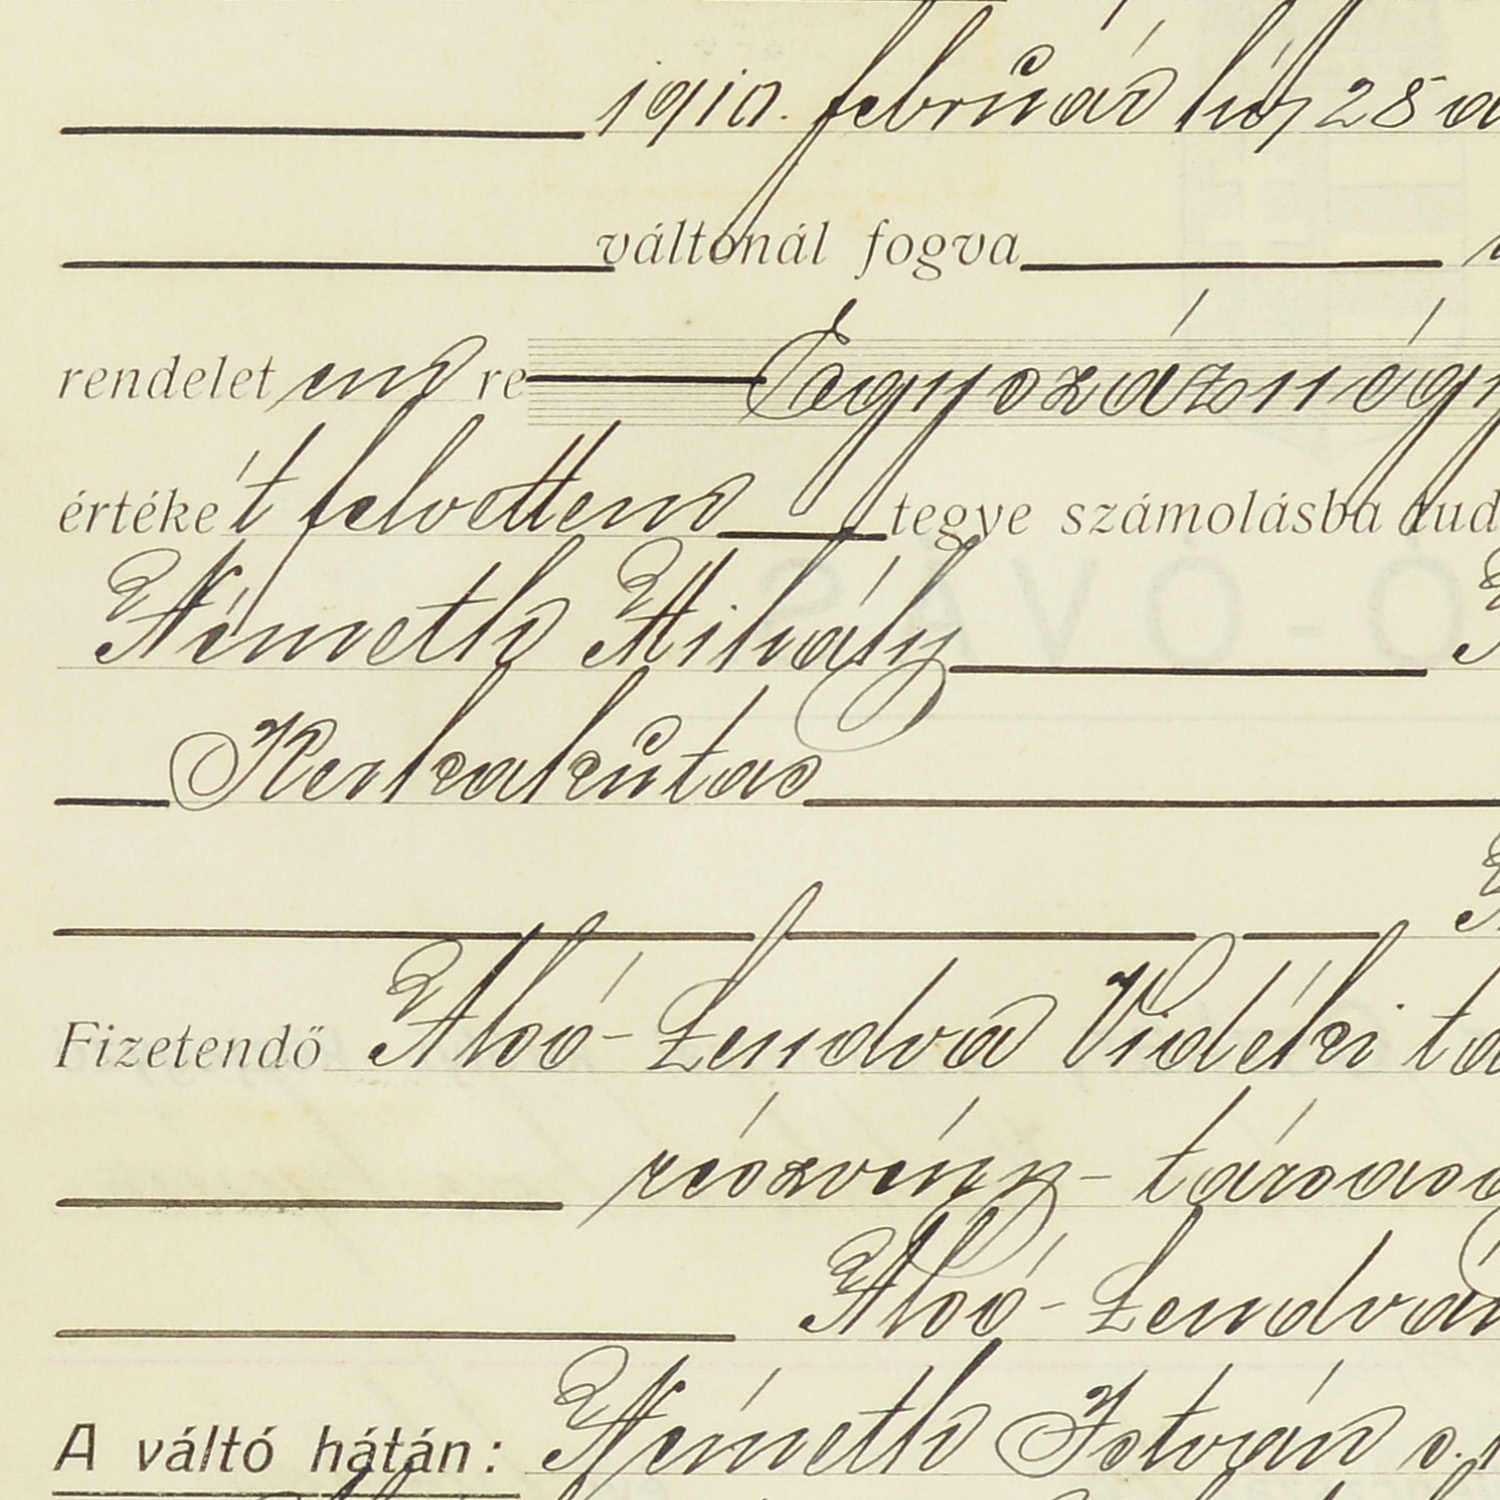 1910. február hó 28 a
váltónál fogva
rendelet em re Egyszáznégy
értéké't felvettem tegye számolásba tud
Németh Mihály
Kerkakutas
Fizetendő Alsó-Lendva Vidéki ta
részvény- társasg
Alsó-Lendván
A váltó hátán: Németh István s.